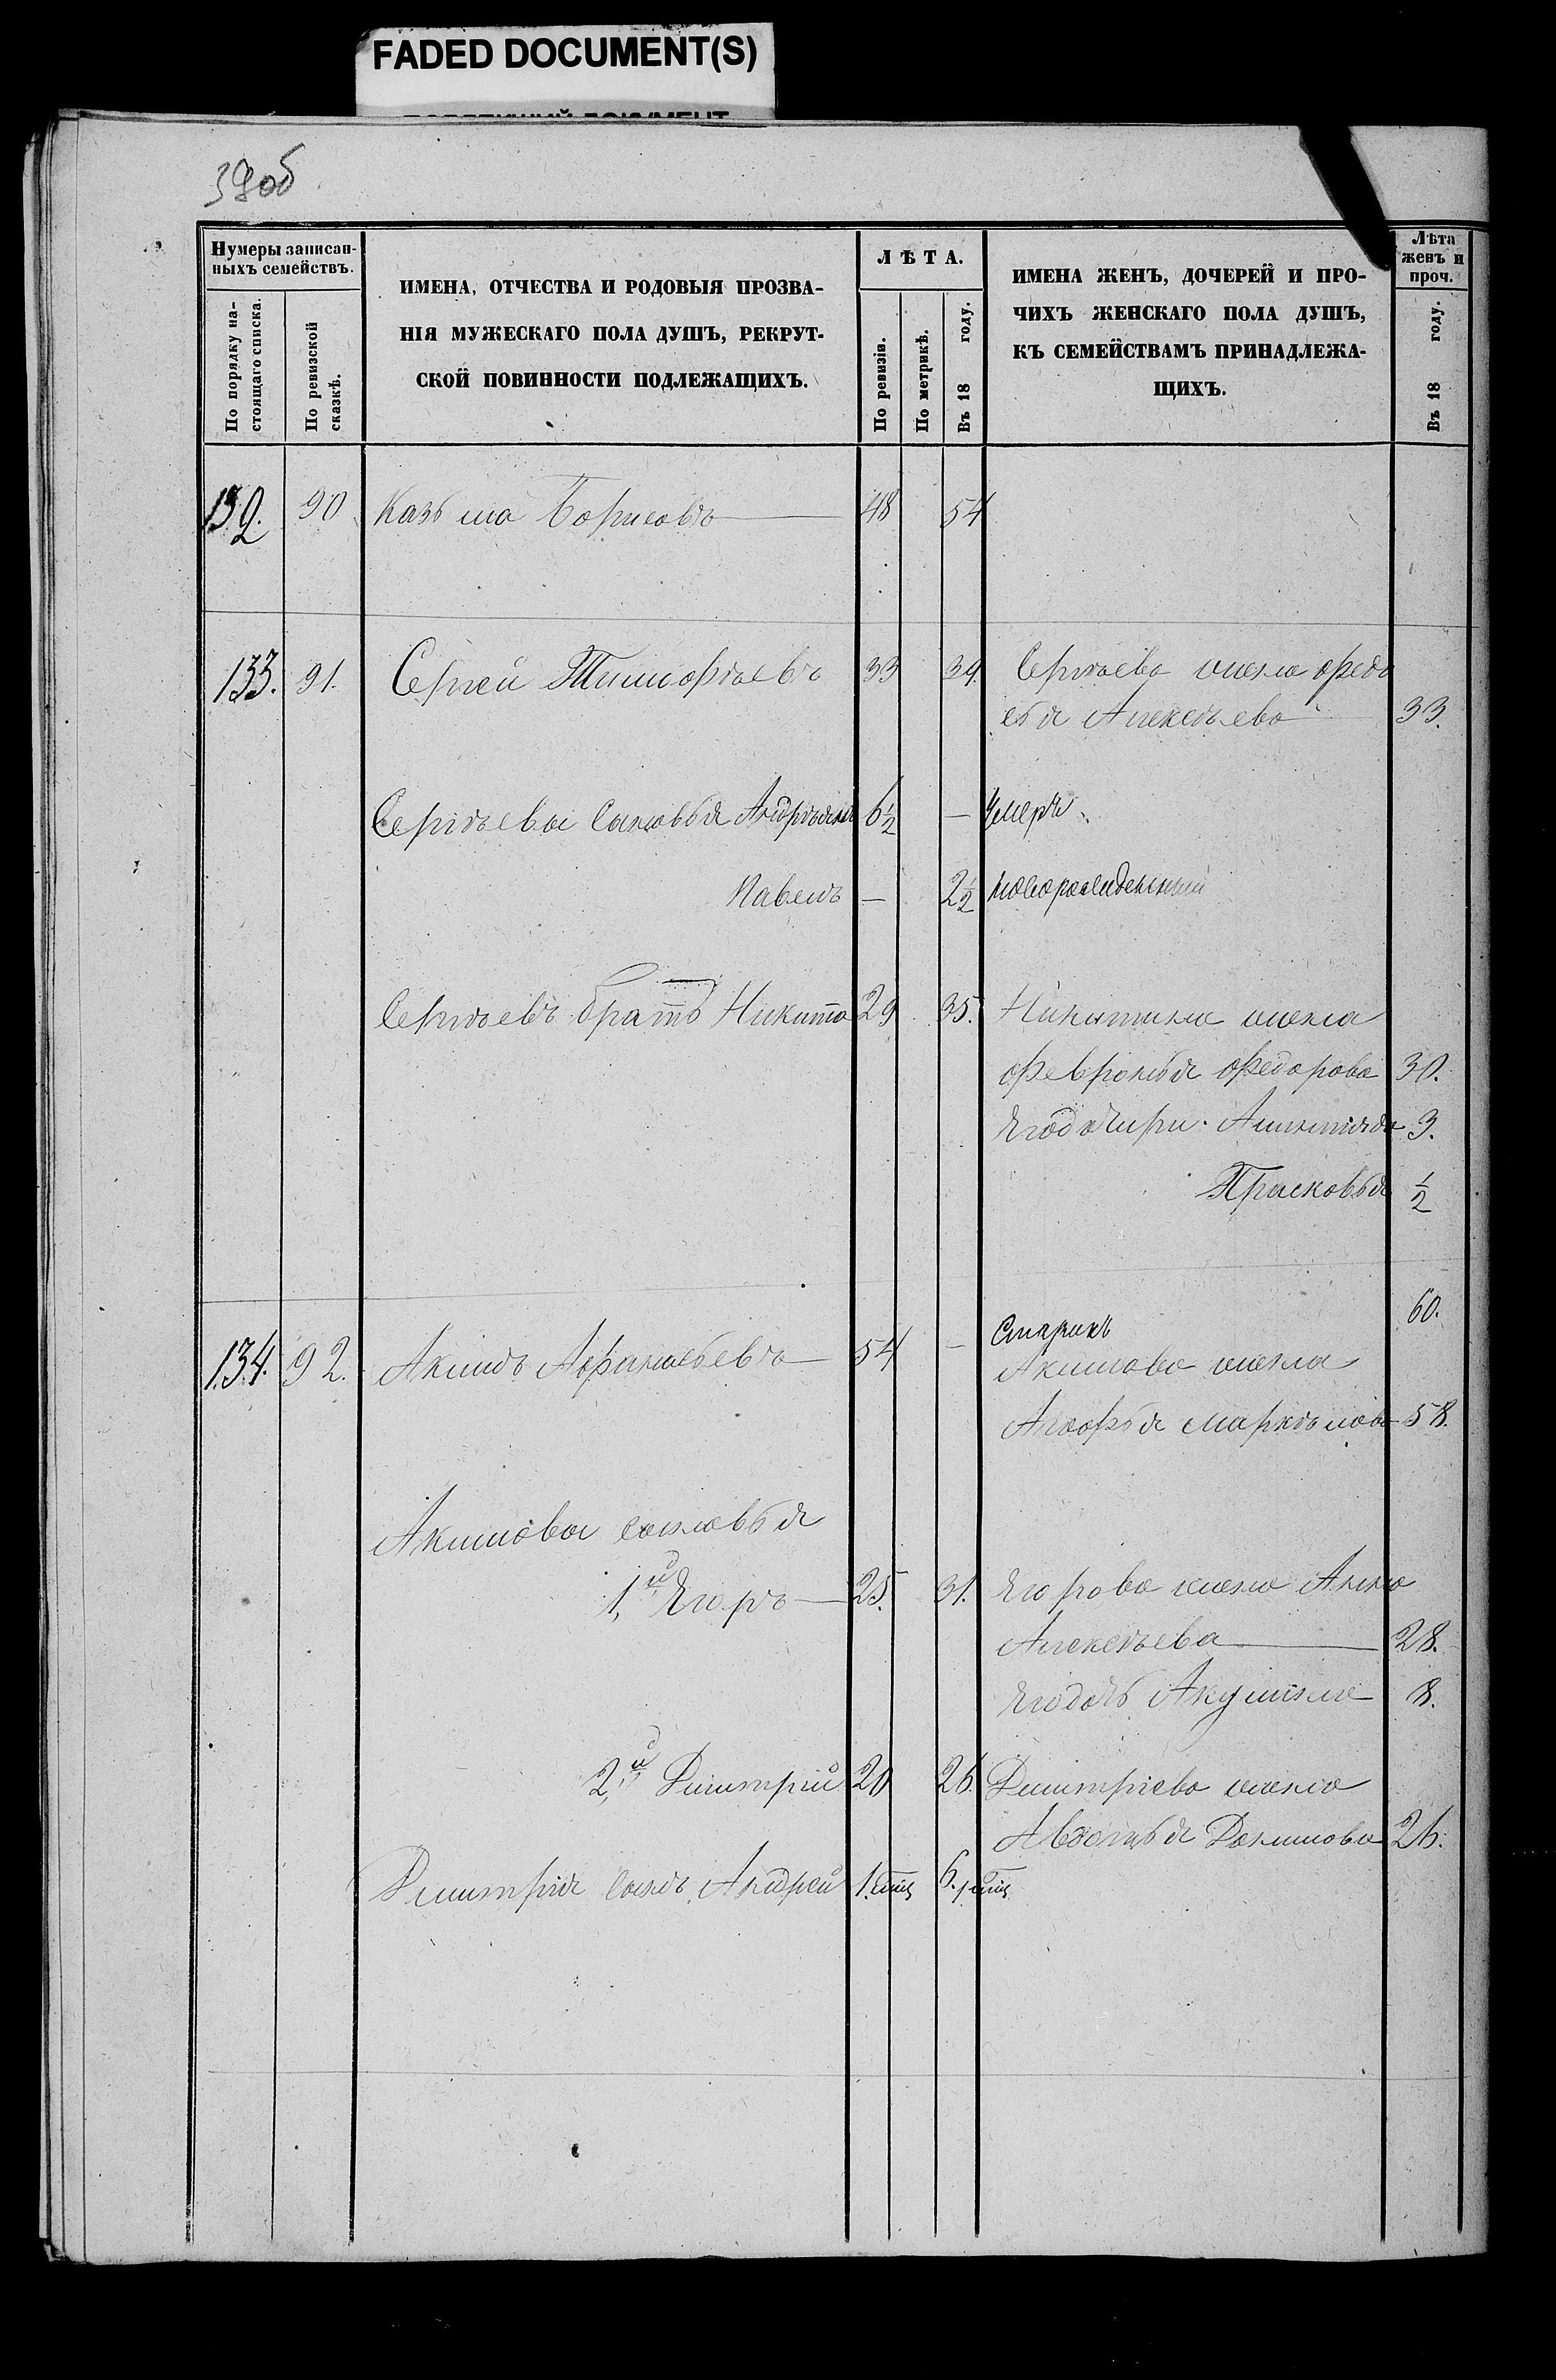 FADED DOCUMENT(S)
39об
Нумеры записан-
ныхъ семействъ.
По порядку на-
стоящаго списка.
По ревизской
сказкѣ.
ИМЕНА, ОТЧЕСТВА И РОДОВЫЯ ПРОЗВА-
НІЯ МУЖЕСКАГО ПОЛА ДУШЪ, РЕКРУТ-
СКОЙ ПОВИННОСТИ ПОДЛЕЖАЩИХЪ.
ЛѢТА.
По ревизіи.
По метрикѣ.
Въ 18 году.
ИМЕНА ЖЕНЪ, ДОЧЕРЕЙ И ПРО-
ЧИХЪ ЖЕНСКАГО ПОЛА ДУШЪ,
КЪ СЕМЕЙСТВАМЪ ПРИНАДЛЕЖА-
ЩИХЪ.
Лѣта
женъ и
проч.
Въ 18 году.
132. 90 Казьма Борисовъ — 48 54
133. 91. Сергей Тимофѣевъ 33 39. Сергѣева жена Федо
сья Алексѣева — 33.
Сергѣевы сыновья Андрѣянъ 6½ — Умеръ
Павелъ — 2½ новорожденный
Сергѣевъ братъ Никита 29 35. Никитина жена
Февронья Федорова 30.
Его дочери. 3.
Прасковья ½
Старикъ 60.
134. 92. Акимъ Афанасьевъ — 54 — Акимова жена
Агафья Маркѣлова 58.
Акимовы сыновья
1,й Егоръ — 25. 31. Егорова жена Анна
Алексѣева — 28.
Его дочь Акулина 8.
2,й Дмитрий 20 26. Дмитріева жена
Авдотья 26.
Дмитрія сынъ Андрей 1. 6.